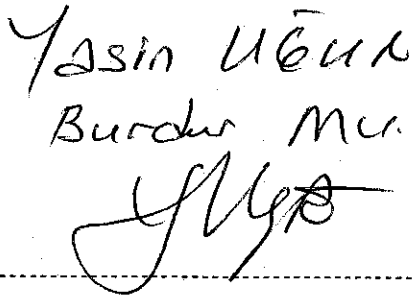 Yasin UĞUR
Burdur Mu.